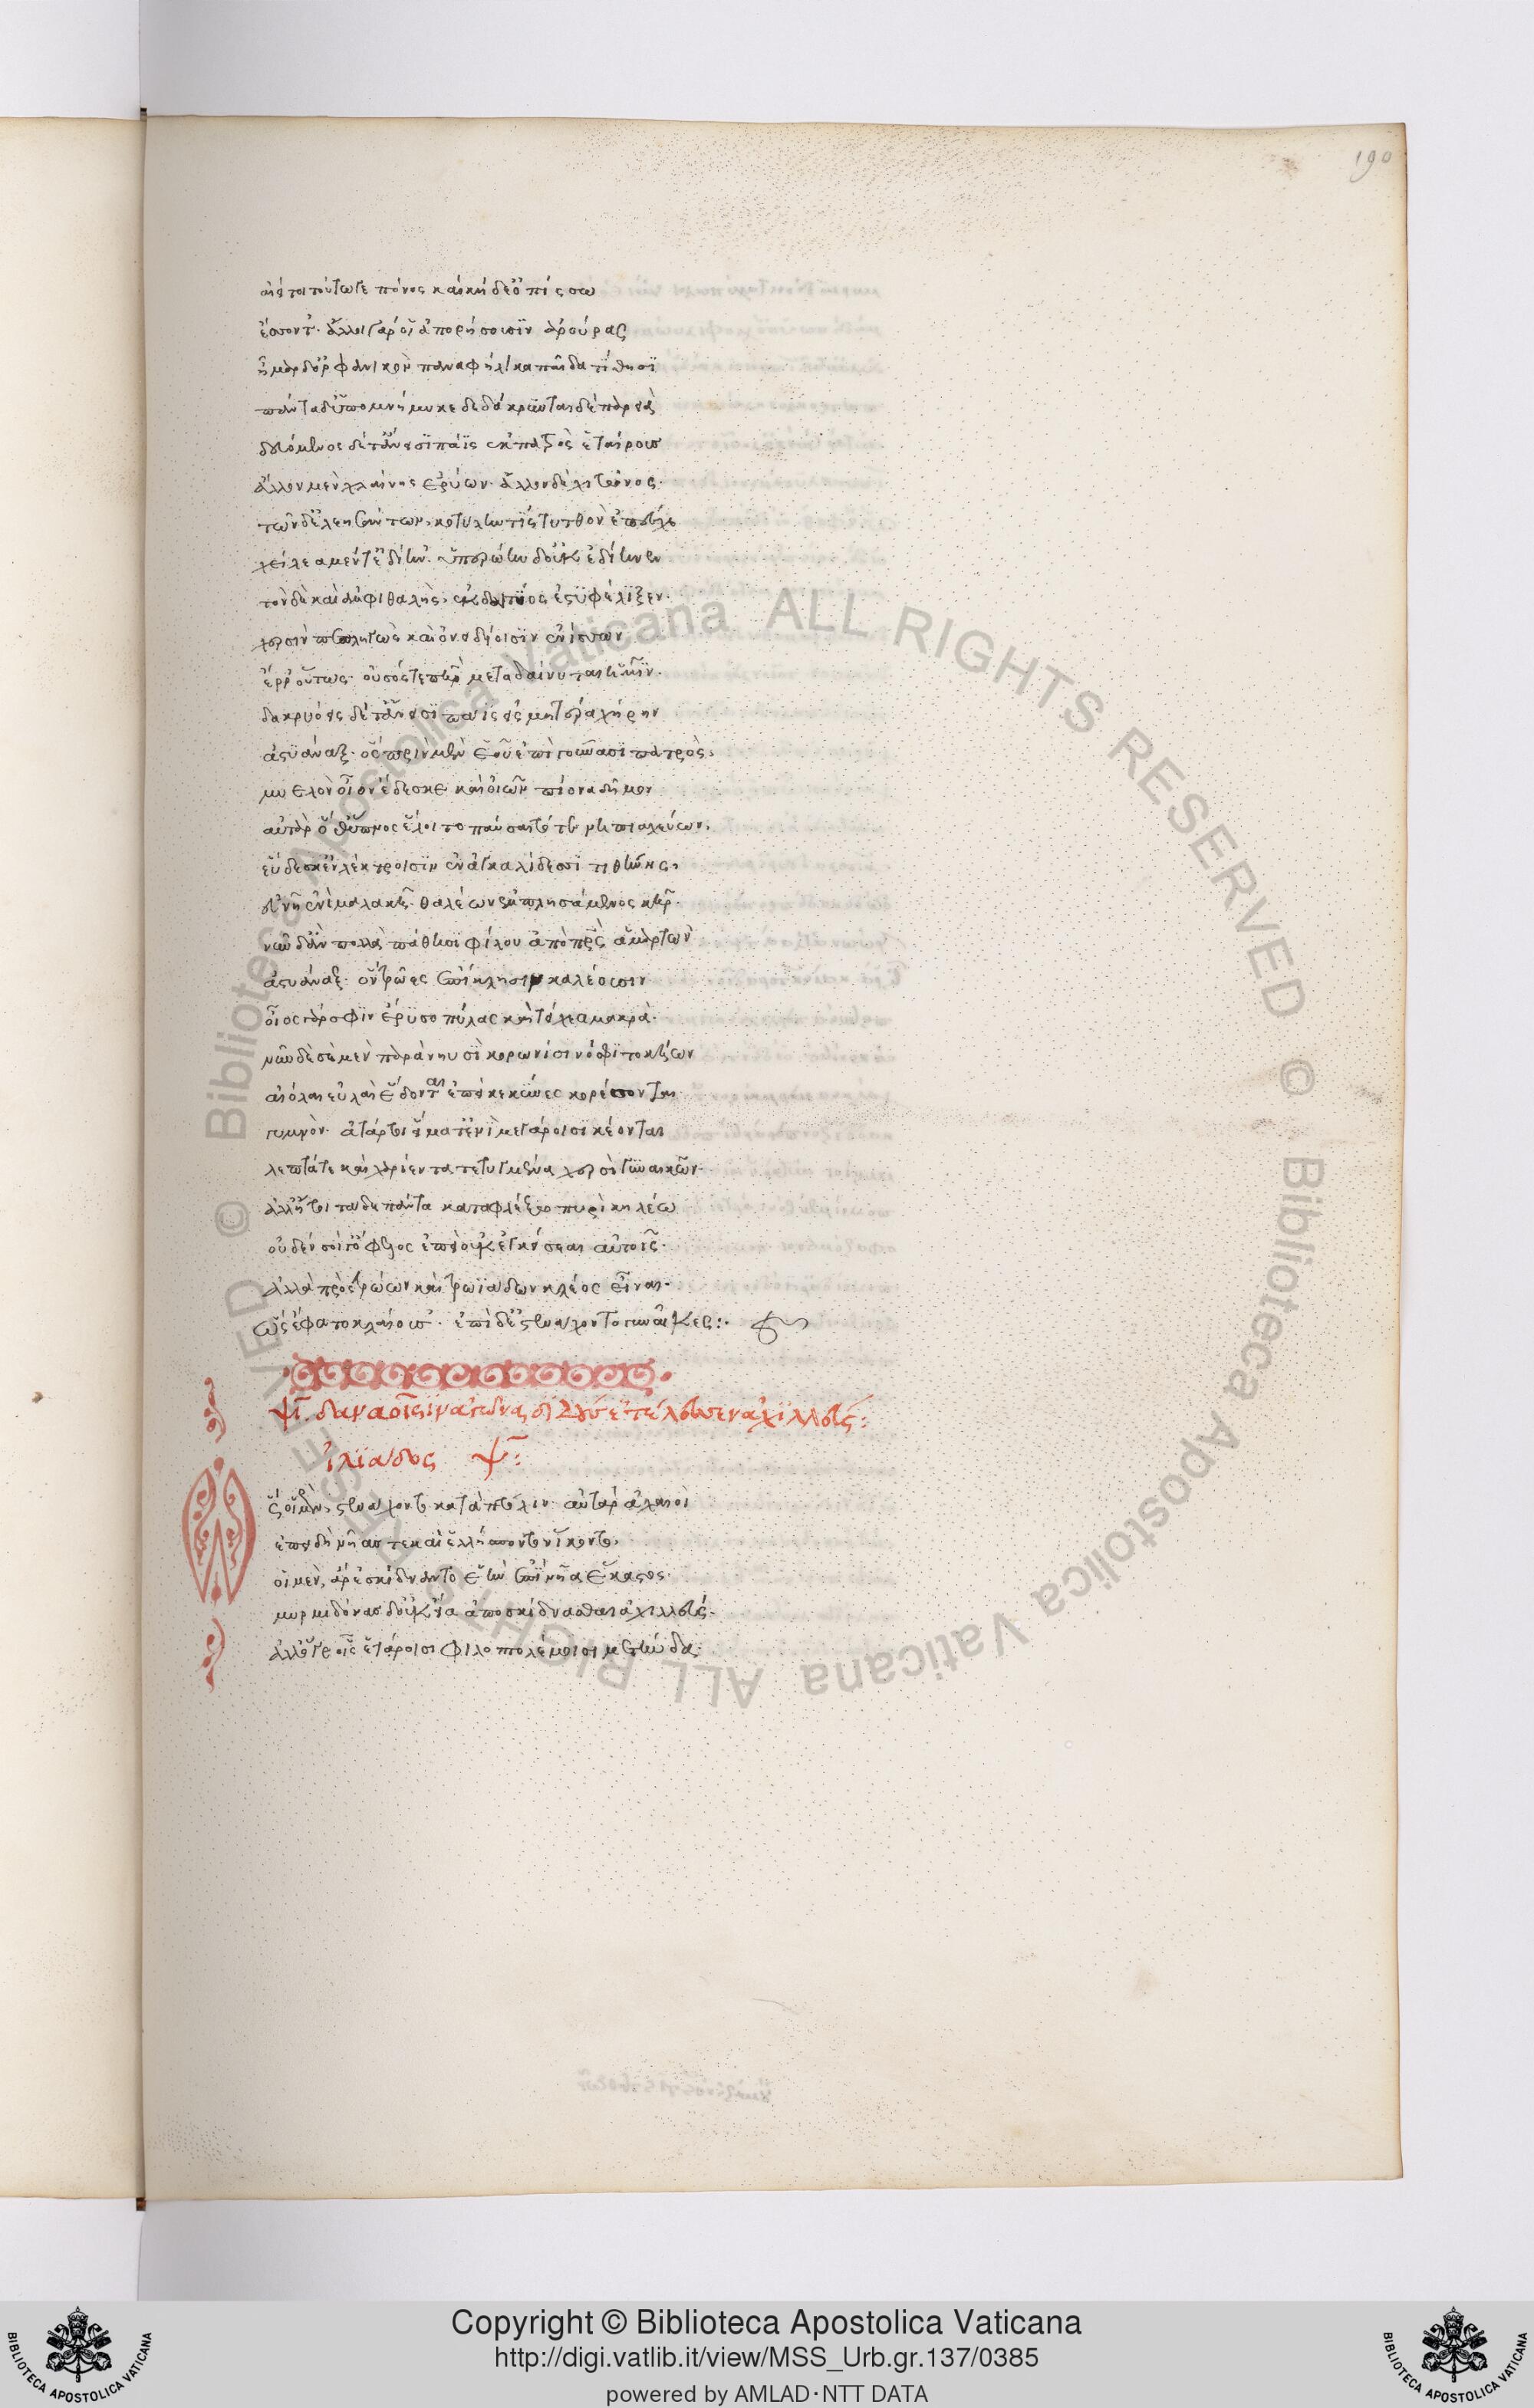 190
αἰεί τοι τούτω γε πόνος καὶ κήδε' ὀπίσσω
ἔσσοντ'. ἄλλοι γάρ οἱ ἀπορήσουσιν ἀρούρας
ἦμαρ δ' ὀρφανικὸν παναφήλικα παῖδα τίθησι
πάντα δ' ὑπομνήμυκε δεδάκρυνται δὲ παρειαὶ
δευόμενος δέ τ' ἄνεισι πάϊς ἐκ πατρὸς ἑταίρους
ἄλλον μὲν χλαίνης ἐρύων. ἄλλον δὲ χιτῶνος.
τῶν δ' ἐλεησάντων, κοτύλην τὶς τυτθὸν ἐπέσχε
χείλεα μέν τ' ἐδίην'. ὑπερώην δ' οὐκ ἐδίηνεν
τὸν δὲ καὶ ἀμφιθαλὴς, ἐκ δαιτύος ἐστυφέλιξεν.
χερσὶν πεπληγὼς καὶ ὀνειδείοισιν ἐνίσσων
ἔρρ' οὕτως. οὐ σός γε πατὴρ μεταδαίνυται ἡμῖν.
δακρυόεις δέ τ' ἄνεισι πάϊς ἐς μητέρα χήρην
ἀστυάναξ. ὃς πρὶν μὲν ἑοῦ ἐπὶ γούνασι πατρὸς,
μυελὸν οἶον ἔδεσκε καὶ οἰῶν πίονα δημὸν
αὐτὰρ ὅθ' ὕπνος ἕλοι παύσαιτό τε νηπιαχεύων,
εὕδεσκ' ἐν λέκτροισιν ἐν ἀγκαλίδεσσι τιθήνης,
εὐνῇ ἐνὶ μαλακῇ. θαλέων ἐμπλησάμενος κῆρ.
νῦν δ' ἂν πολλὰ πάθῃσι φίλου ἀπὸ πατρὸς ἁμαρτὼν
ἀστυάναξ. ὃν τρῶες ἐπίκλησιν καλέουσιν
οἶος γάρ σφιν ἔρυσο πύλας καὶ τείχεα μακρὰ.
νῦν δὲ σὲ μὲν παρὰ νηυσὶ κορωνίσι νόσφι τοκήων
αἰόλαι εὐλαὶ ἔδονται ἐπεί κε κύνες κορέσονται
γυμνὸν. ἀτάρ τοι εἵματ' ἐνὶ μεγάροισι κέονται
λεπτά τε καὶ χαρίεντα τετυγμένα χερσὶ γυναικῶν.
ἀλλ' ἤτοι τάδε πάντα καταφλέξω πυρὶ κηλέω
οὐδὲν σοί γ' ὄφελος ἐπεὶ οὐκ ἐγκείσεαι αὐτοῖς.
ἀλλὰ πρὸς τρώων καὶ τρωϊάδων κλέος εἶναι.
ὣς ἔφατο κλαίουσ'. ἐπὶ δὲ στενάχοντο γυναῖκες:.
ψῖ. δαναοῖσιν ἀγῶνας ἐτέλεσσεν ἀχιλλεύς:
ἰλιάδος ψ:
ὣς οἱ μὲν, στενάχοντο κατὰ πτόλιν. αὐτὰρ ἀχαιοὶ
ἐπειδὴ νῆάς τε καὶ ἑλλήσποντον ἵκοντο,
οἱ μὲν, ἄρ' ἐσκίδναντο ἑὴν ἐπὶ νῆα ἕκαστος.
μυρμιδόνας δ' οὐκ εἴα ἀποσκίδνασθαι ἀχιλλεύς.
ἀλλ' ὅγε οἷς ἑτάροισι φιλοπολέμοισι μετηύδα.
© Biblioteca Apostolica Vaticana ALL RIGHTS RESERVED © Biblioteca Apostolica Vaticana ALL RIGHTS RESERVED
Copyright © Biblioteca Apostolica Vaticana
http://digi.vatlib.it/view/MSS_Urb.gr.137/0385
powered by AMLAD·NTT DATA
BIBLIOTECA APOSTOLICA VATICANA
BIBLIOTECA APOSTOLICA VATICANA